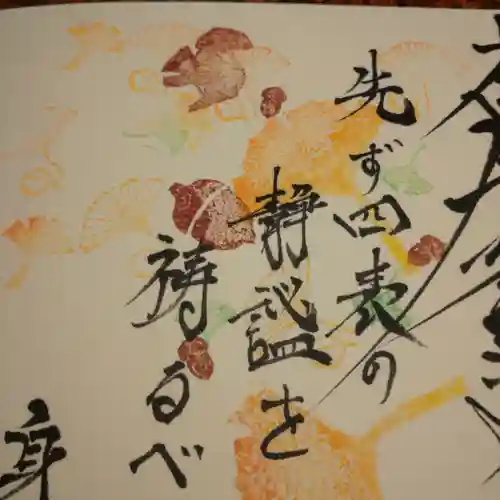 先ず四表の
静謐を
祷るべ
身